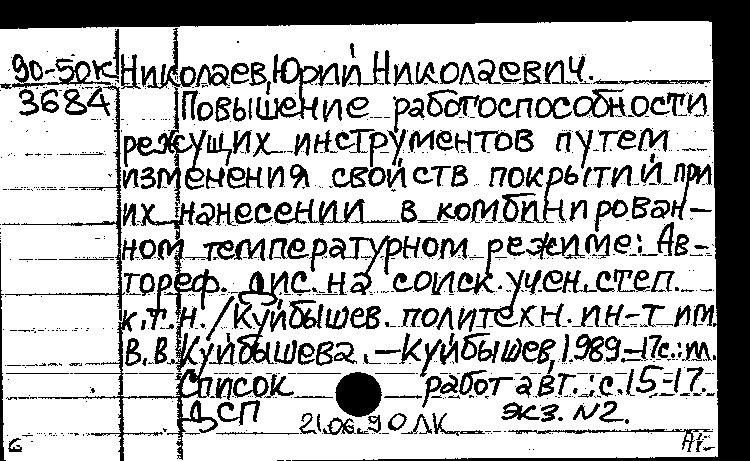 90-50к Николаев, Юрий Николаевич.
3684 Повышение работоспособности
режущих инструментов путем
изменения свойств покрытий при
их нанесении в комбинирован-
ном температурном режиме: Ав-
тореф. дис. на соиск. учен. степ.
к.т.н. / Куйбышев. политехн. ин-т им.
В.В. Куйбышева. – Куйбышев, 1989. – 17с.: ил.
Список работ авт.: с. 15-17.
ДСП 21.06.90 ЛК экз. N2.
6